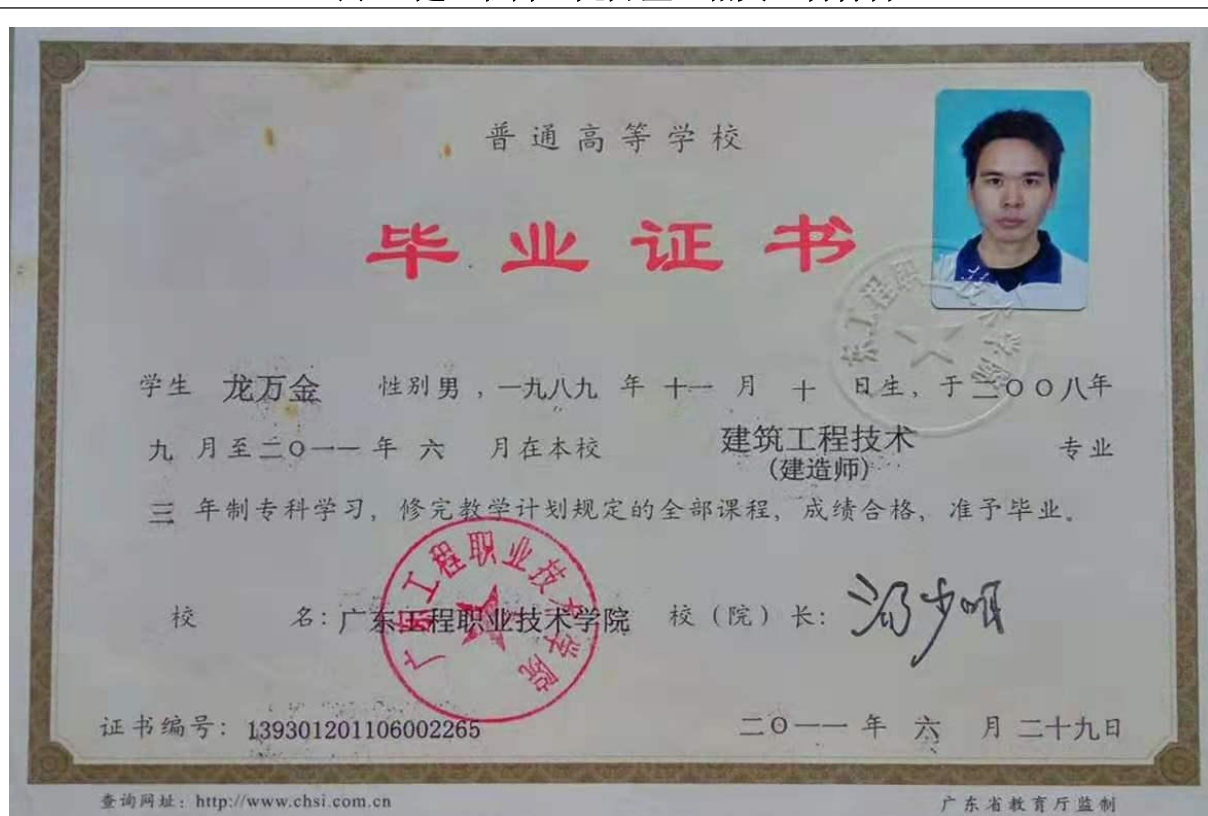 普通高等学校
毕业证书
学生 龙万金 性别 男 , 一九八九 年 十一 月 十 日生, 于二〇〇八年
九 月至二〇一一 年 六 月在本校 建筑工程技术 专业
(建造师)
三 年制专科学习, 修完教学计划规定的全部课程, 成绩合格, 准予毕业。
广东工程职业技术学院
校 名: 广东工程职业技术学院 校(院)长:
证书编号: 139301201106002265 二〇一一 年 六 月 二十九日
查询网址: http://www.chsi.com.cn 广东省教育厅监制